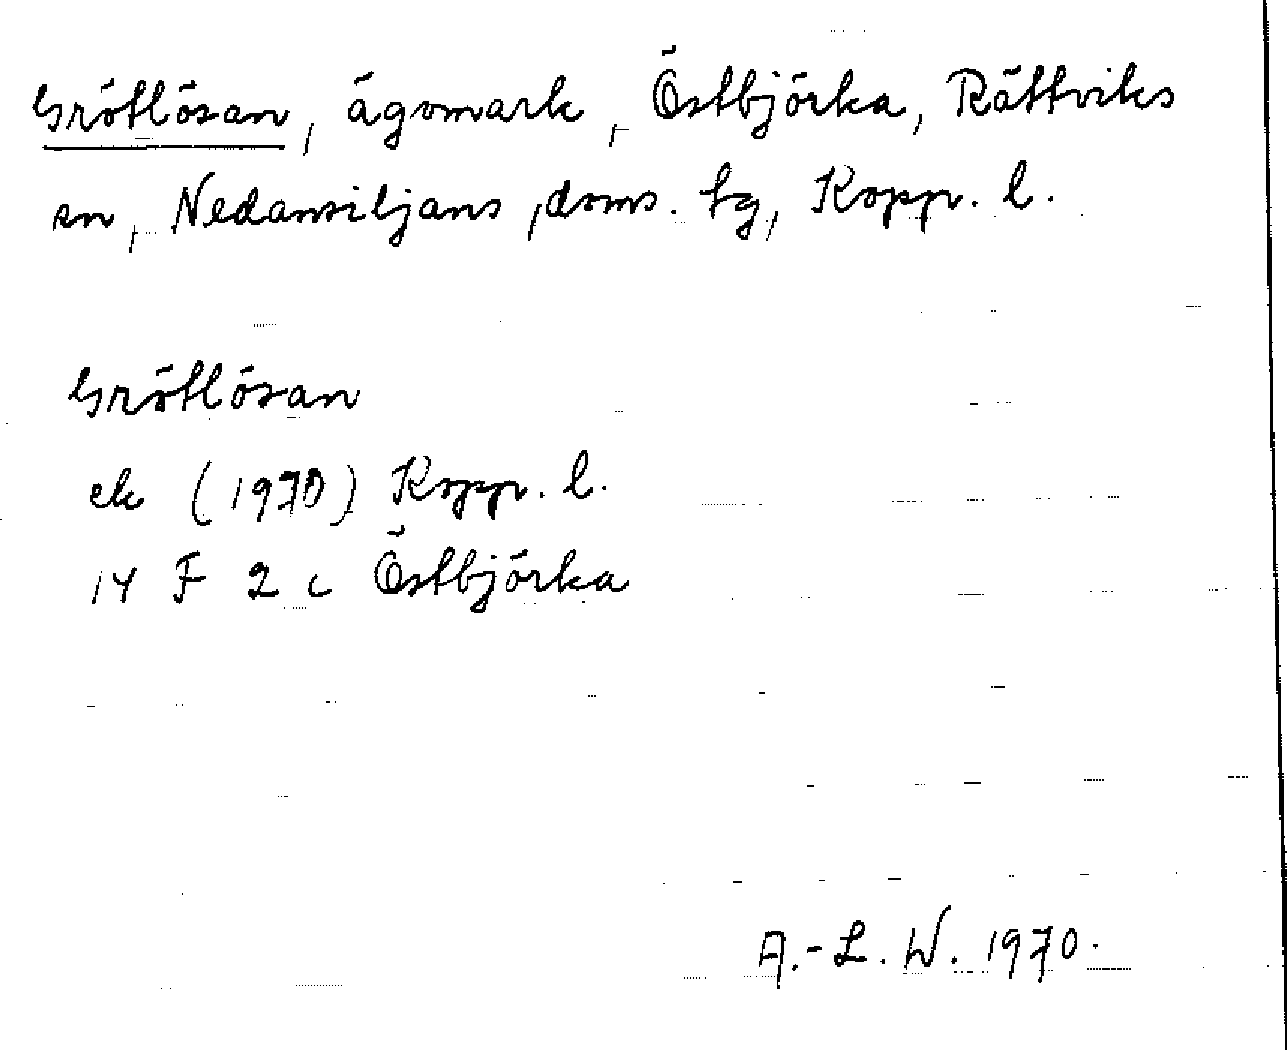 Grötlösan, ägomark, Östbjörka, Rättviks
sn, Nedansiljans, doms. tg, Kopp. l.
Grötlösan
ek (1970) Kopp. l.
14 F 2 c Östbjörka
A.-L. W. 1970.